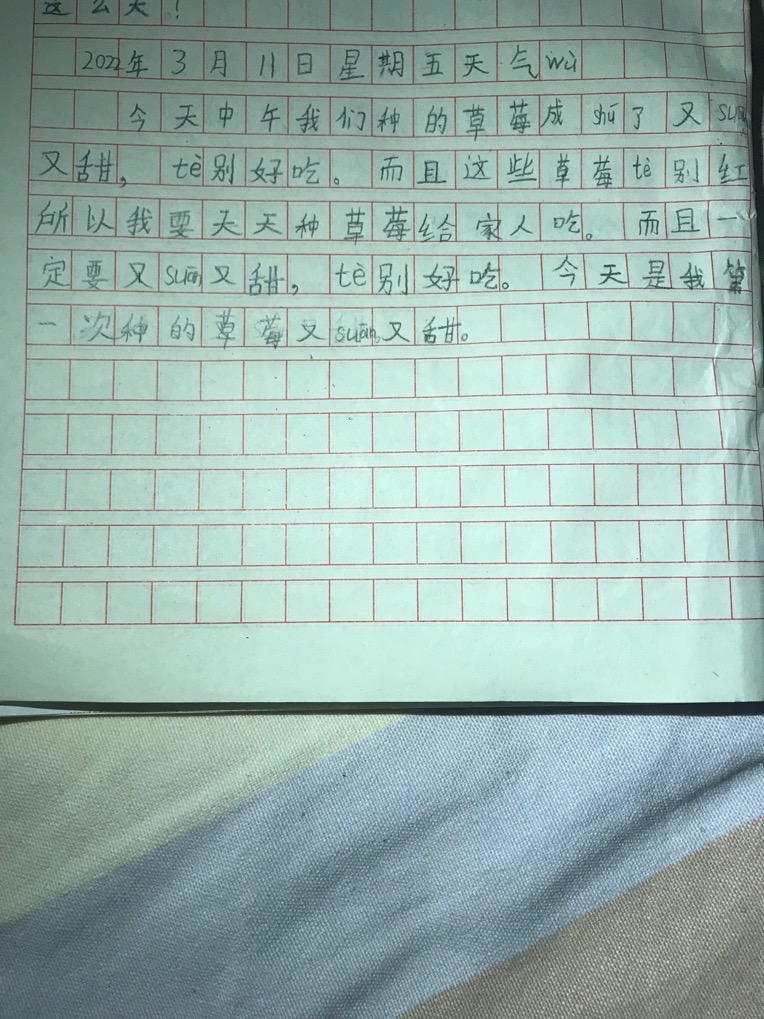 这么大！
2022年3月11日星期五天气wù
今天中午我们种的草莓成shú了又suān
又甜，tè别好吃。而且这些草莓tè别红
所以我要天天种草莓给家人吃。而且一
定要又suān又甜，tè别好吃。今天是我第
一次种的草莓又suān又甜。